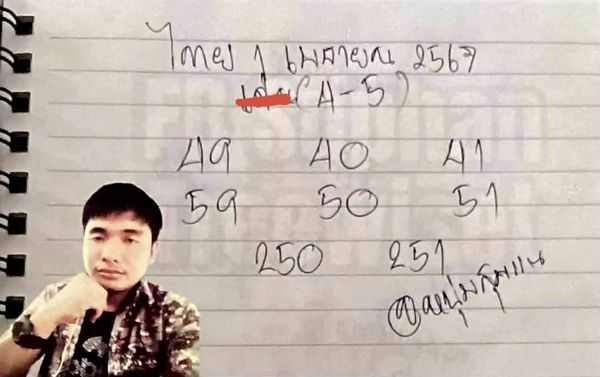 ไทย 1 เมษายน 2567
(4-5)
49 40 41
59 50 51
250 251